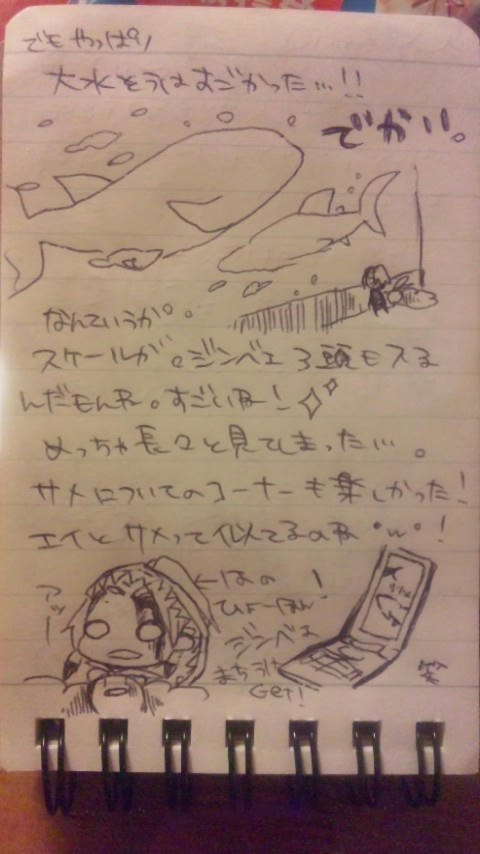 でもやっぱり
大水そうはすごかった…!!
でがい。
なんていうか。。
スケールが。ジンベエ3頭もする
んだもんね。すごいね!
めっちゃ長々と見てしまった…。
サメについてのコーナーも楽しかった!
エイとサメって似てるのね°w°!
アッー
←ほの
ひょーほん!
ジンベエ
まちうけ
Get!
笑